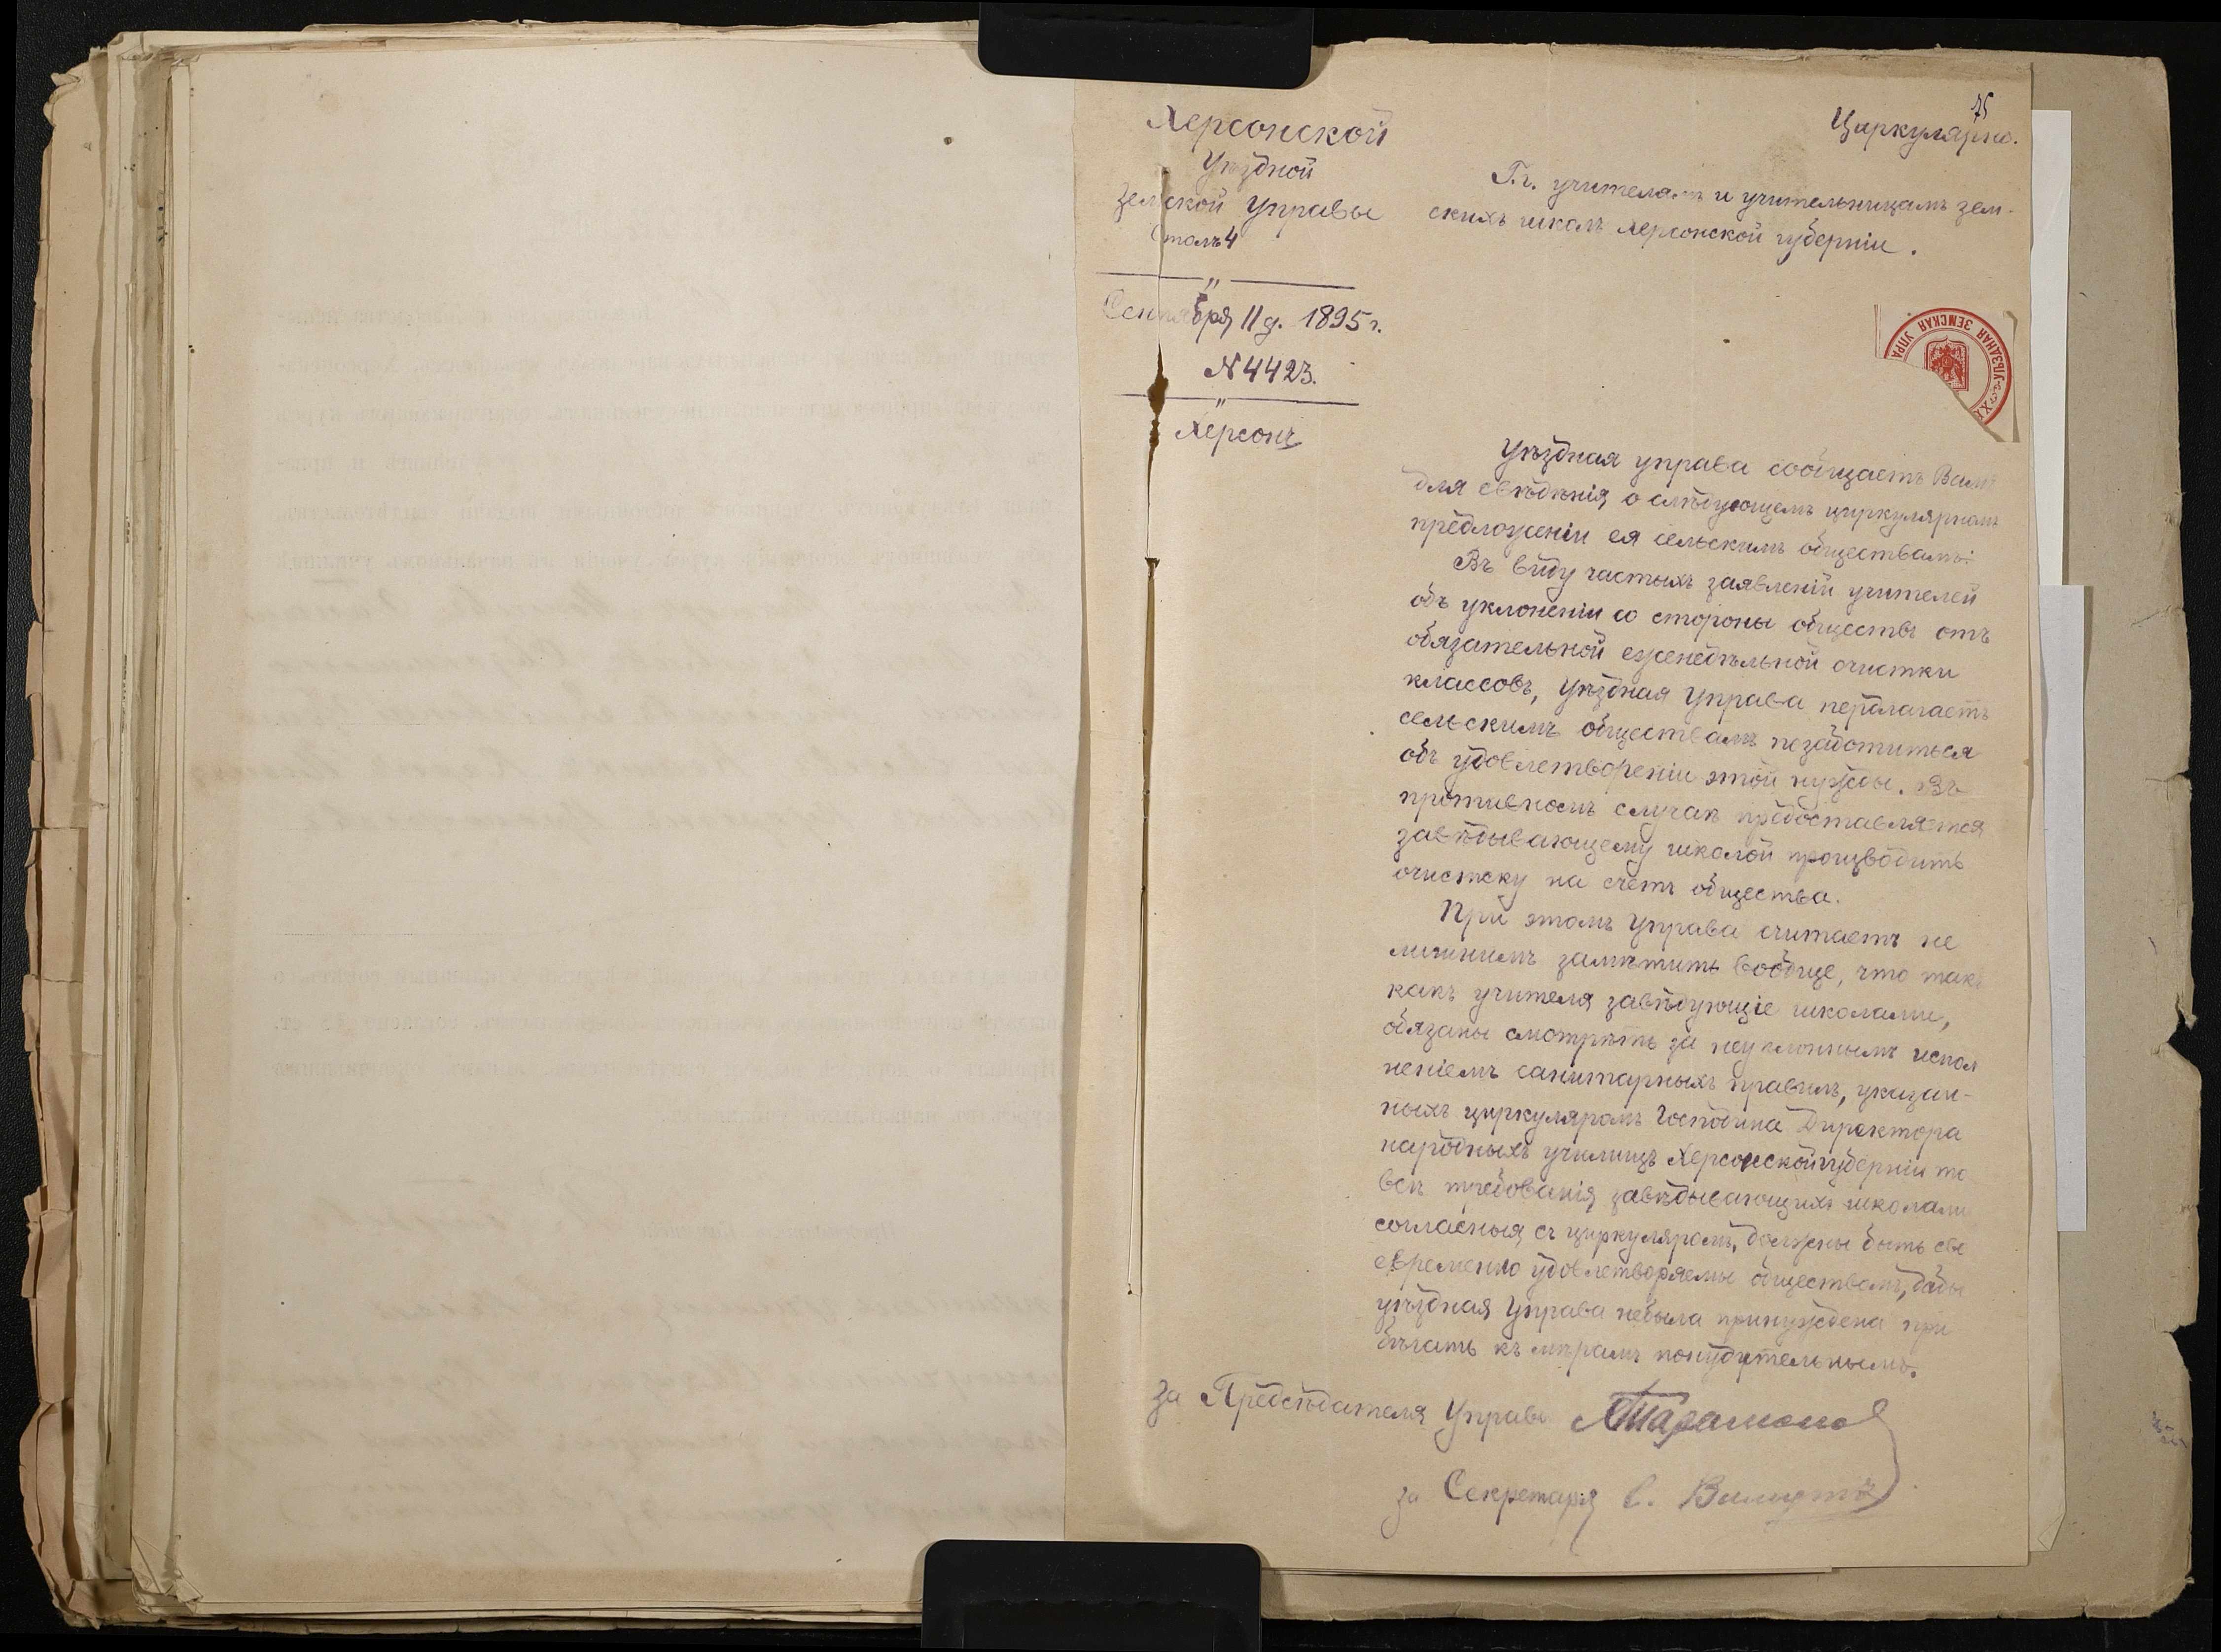 75
Циркулярно.
Херсонской
Уѣздной
Земской Управы
Столъ 4
Сентября 11 д. 1895 г.
№ 4423.
Херсонъ
Г.г. учителямъ и учительницамъ зем-
скихъ школъ Херсонской губерніи.
УѢЗДНАЯ ЗЕМСКАЯ УПРА
Уѣздная управа сообщаетъ Вамъ
для свѣдѣнія, о слѣдующемъ циркулярномъ
предложеніи ея сельскимъ обществамъ:
Въ виду частыхъ заявленій учителей
объ уклоненіи со стороны обществъ отъ
обязательной еженедѣльной очистки
классовъ, Уѣздная Управа перлагаетъ
сельскимъ обществамъ позаботиться
объ удовлетвореніи этой нужды. Въ
противномъ случаѣ предоставляется
завѣдывающему школой производить
очистку на счетъ общества.
При этомъ Управа считаетъ не
лишнимъ замѣтить вообще, что такъ
какъ учителя завѣдующіе школами,
обязаны смотрѣть за неуклоннымъ испол
неніемъ санитарныхъ правилъ, указан-
ныхъ циркуляромъ Господина Директора
народныхъ училищъ Херсонской губерніи то
всѣ требованія завѣдывающихъ школами
согласныя съ циркуляромъ, должны быть сво
евременно удовлетворяемы обществомъ, дабы
уѣздная Управа небыла принуждена при
бѣгать къ мѣрамъ понудительнымъ.
За Предсѣдателя Управы
за Секретаря С.